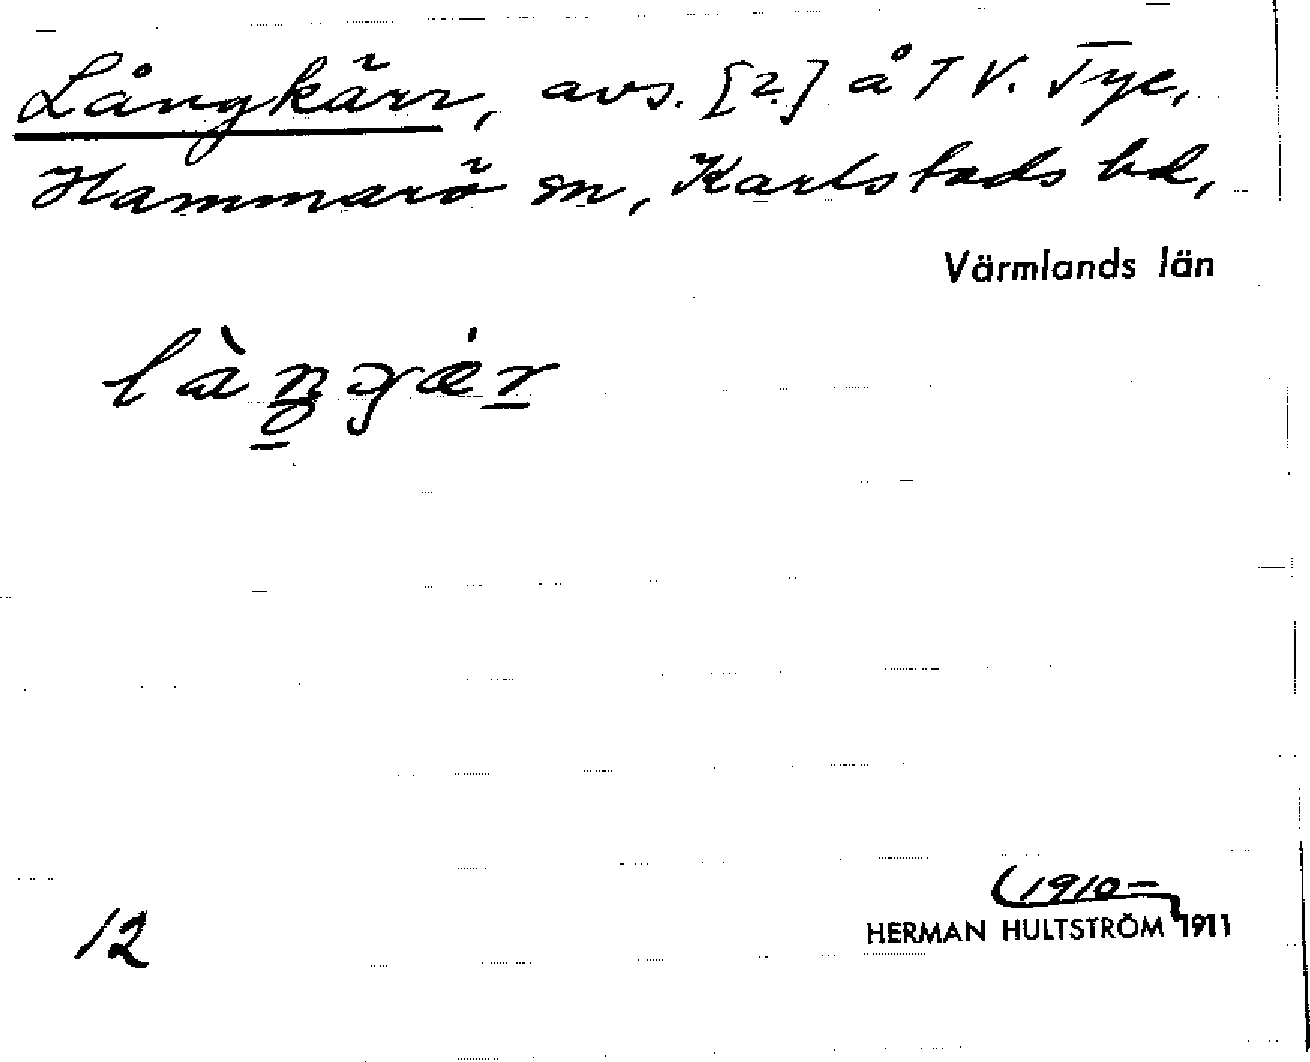 Långkärr, avs. [2] å T V. Tye,
Hammarö sn, Karlstads hd,
Värmlands län
(1910-
12
HERMAN HULTSTRÖM 1911